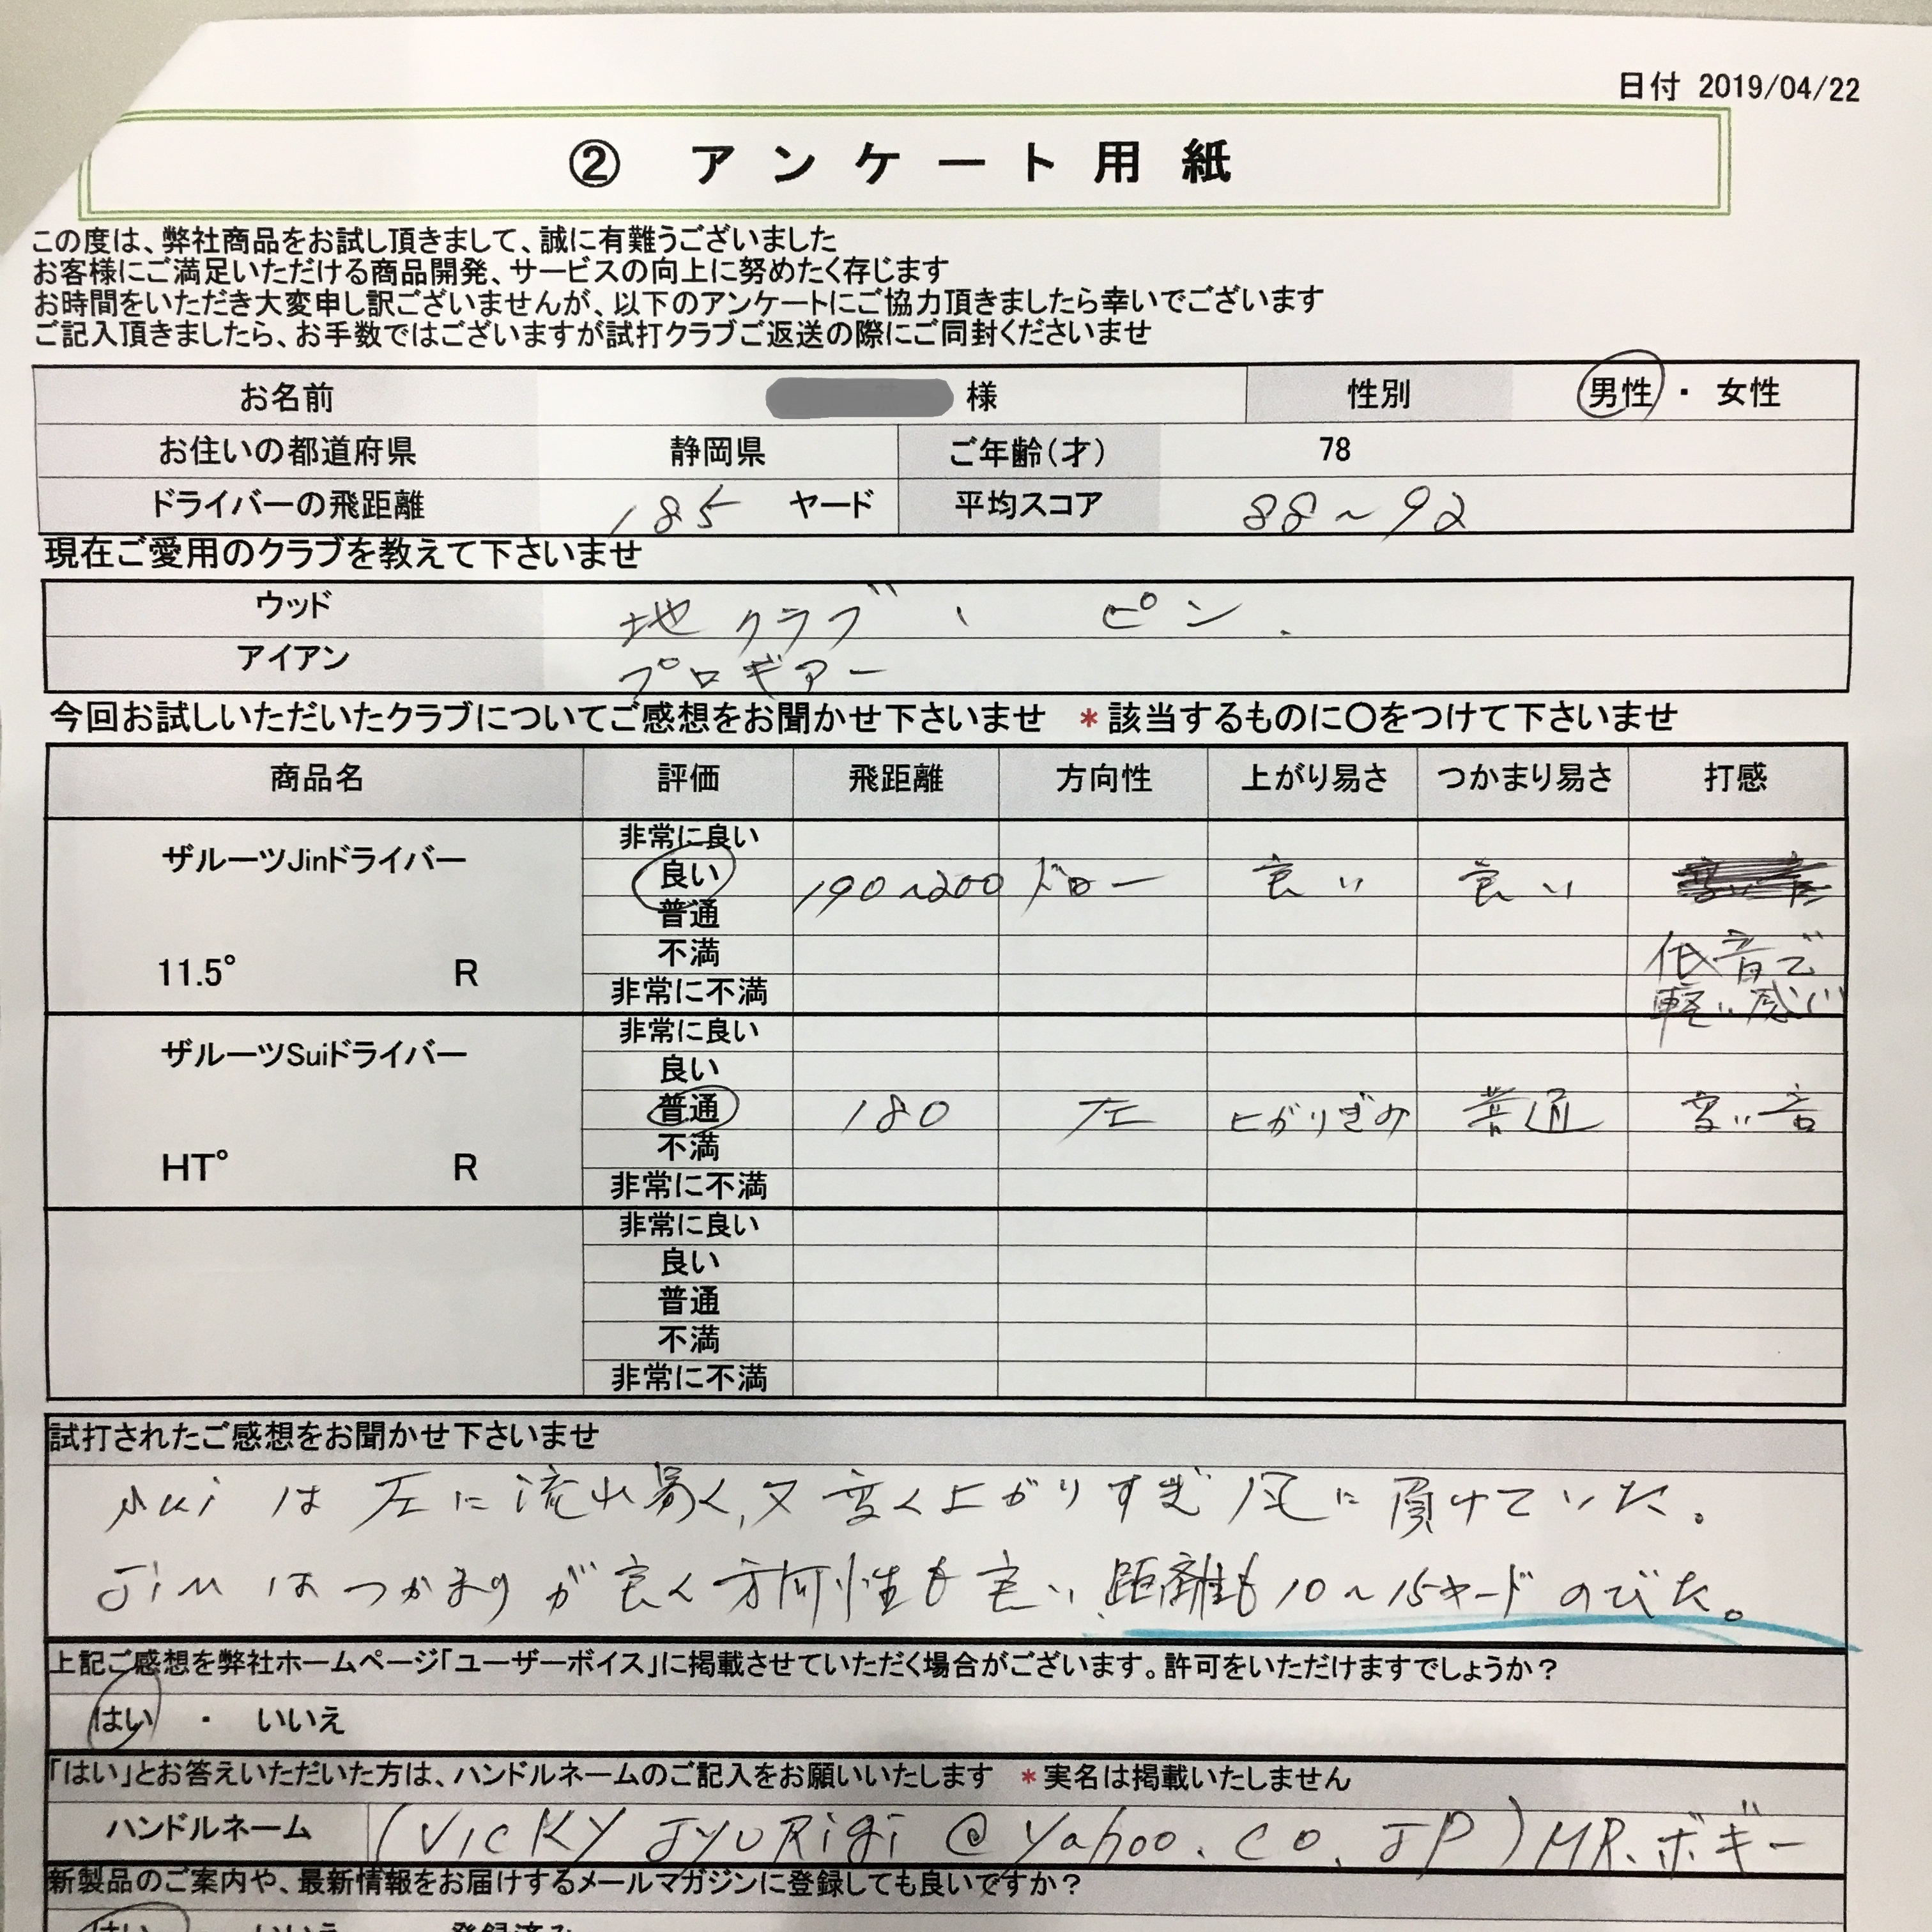 日付 2019/04/22
② アンケート用紙
この度は、弊社商品をお試し頂きまして、誠に有難うございました
お客様にご満足いただける商品開発、サービスの向上に努めたく存じます
お時間をいただき大変申し訳ございませんが、以下のアンケートにご協力頂きましたら幸いでございます
ご記入頂きましたら、お手数ではございますが試打クラブご返送の際にご同封くださいませ
お名前 様 性別 男性 ・ 女性
お住いの都道府県 静岡県 ご年齢(才) 78
ドライバーの飛距離 185 ヤード 平均スコア 88~92
現在ご愛用のクラブを教えて下さいませ
ウッド 地クラブ、 ピン.
アイアン プロギアー
今回お試しいただいたクラブについてご感想をお聞かせ下さいませ *該当するものに〇をつけて下さいませ
商品名 評価 飛距離 方向性 上がり易さ つかまり易さ 打感
ザルーツJinドライバー
11.5° R
非常に良い
良い 190~200 ドロー 良い 良い
普通
不満
非常に不満
低音で
軽い感じ
ザルーツSuiドライバー
HT° R
非常に良い
良い
普通 180 左 上がりぎみ 普通 音
不満
非常に不満
非常に良い
良い
普通
不満
非常に不満
試打されたご感想をお聞かせ下さいませ
sui は左に流れ易く,又 上がりすぎ風に負けていた。
Jin はつかまりが良く方向性も良い、距離も10~15ヤードのびた。
上記ご感想を弊社ホームページ「ユーザーボイス」に掲載させていただく場合がございます。許可をいただけますでしょうか?
はい ・ いいえ
「はい」とお答えいただいた方は、ハンドルネームのご記入をお願いいたします *実名は掲載いたしません
ハンドルネーム (VICKY JYURigi @ yahoo.co.JP) MR.ボギー
新製品のご案内や、最新情報をお届けするメールマガジンに登録しても良いですか?
はい ・ いいえ 登録済み